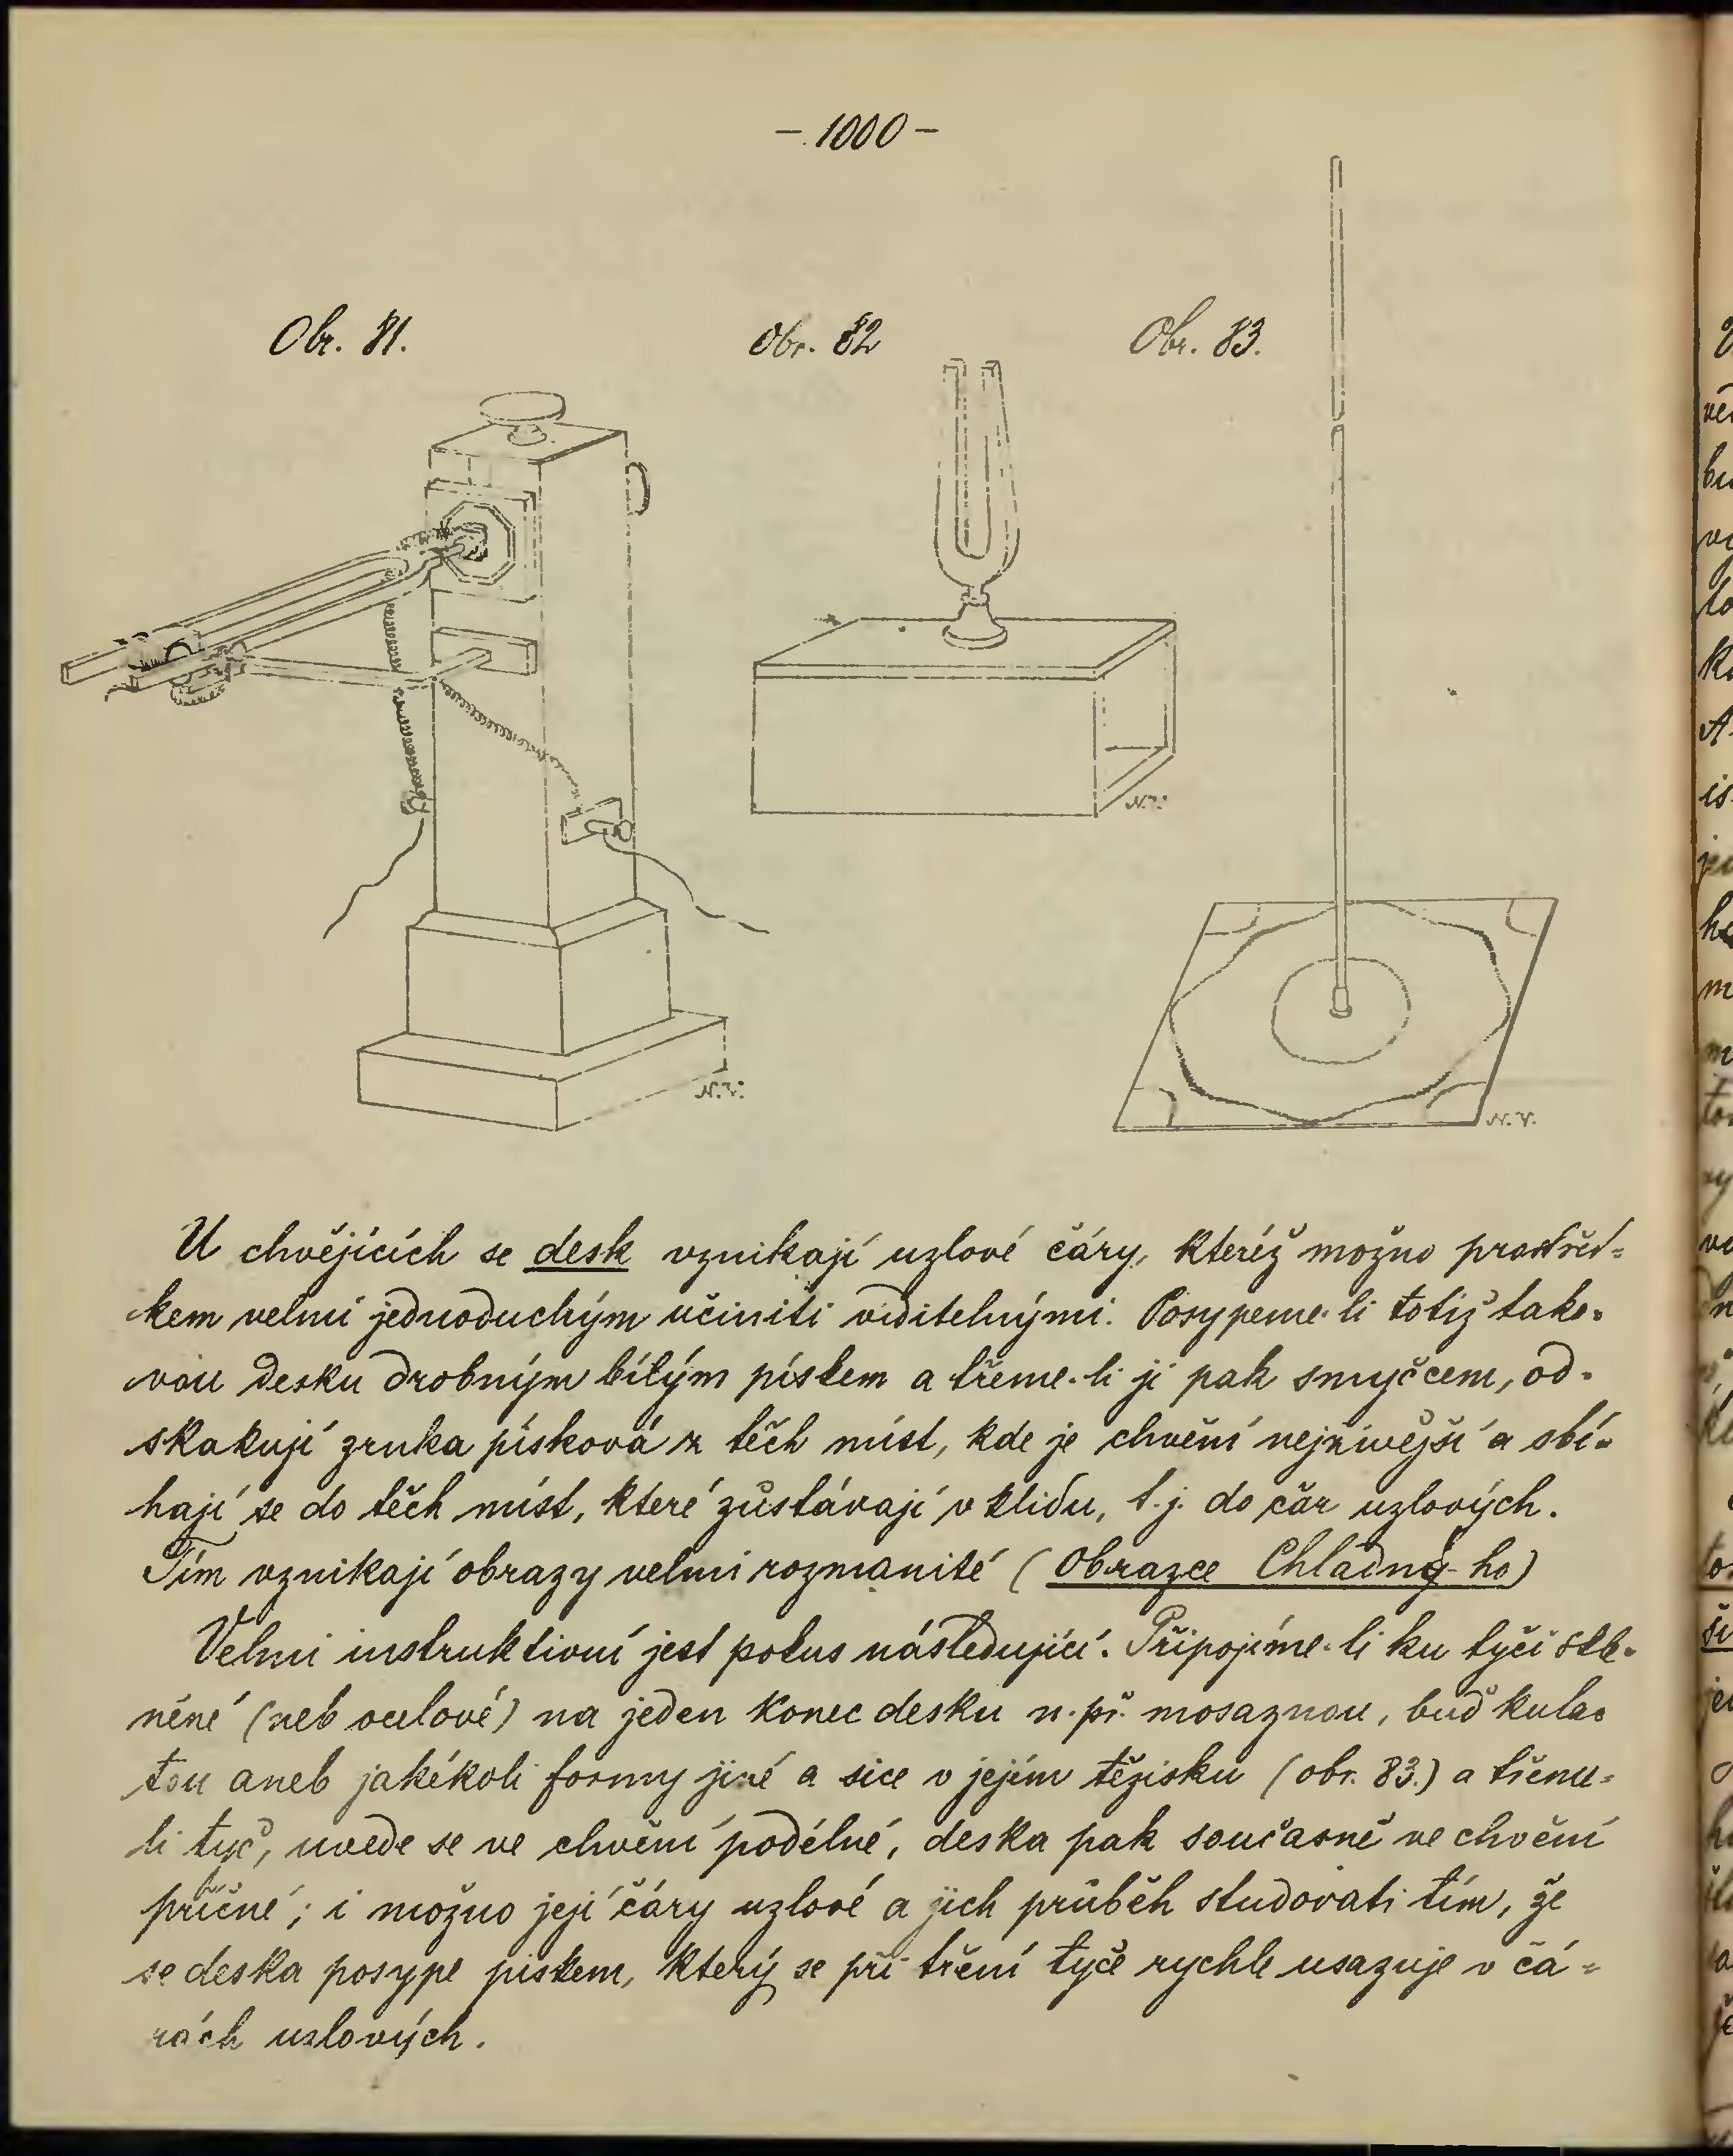 - 1000 -
Obr. 81.
Obr. 82
Obr. 83.
N.V.
N.V.
N.V.
U chvějících se desk vznikají uzlové čáry, kteréž možno prostřed=
kem velmi jednoduchým učiniti viditelnými. Posypeme-li totiž tako-
vou desku drobným bílým pískem a třeme-li ji pak smyčcem, od-
skakují zrnka písková z těch míst, kde je chvění nejživější a sbí-
hají se do těch míst, které zůstávají v klidu, t.j. do čar uzlových.
Tím vznikají obrazy velmi rozmanité (Obrazce Chladny-ho)
Velmi instruktivní jest pokus následující. Připojíme-li ku tyči skle-
něné (neb ocelové) na jeden konec desku n.př. mosaznou, buď kula-
tou aneb jakékoli formy jiné a sice v jejím těžisku (obr. 83.) a třeme=
li tyč, uvede se ve chvění podélné, deska pak současně ve chvění
příčné; i možno její čáry uzlové a jich průběh studovati tím, že
se deska posype pískem, který se při tření tyče rychle usazuje v čá=
rách uzlových.